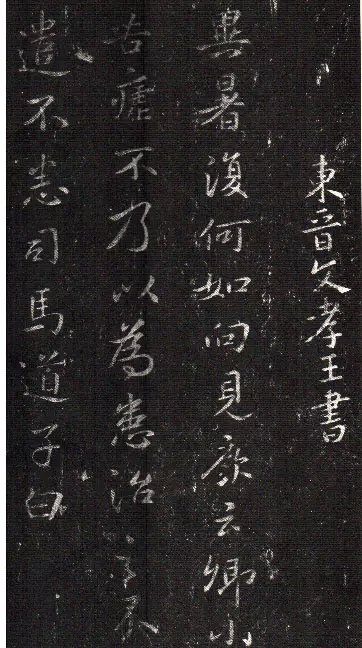 東晉文孝王書
異暑復何如向見廞云卿小
苦瘧不乃以為患治
遣不悉司馬道子白